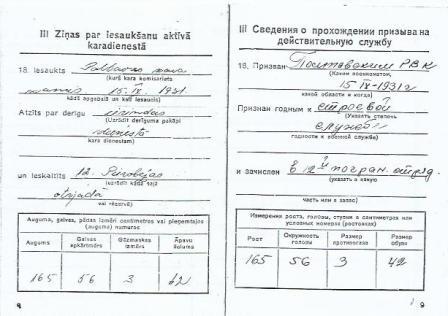 III Ziņas par iesaukšanu aktīvā
karadienestā
18. Iesaukts
(kurš kara komisariats
15. IX. 1931.
kādā apgabalā un kad iesaucis)
Atzīts par derīgu
(Uzrādīt derīguma pakāpi
dienestā
kara dienestam)
un ieskaitīts 12.
(uzrādīt kādā daļā
vai rezervē)
Auguma, galvas, pēdas izmēri centimetros vai pieņemtajos
(augumu) numuros
Augums
Galvas apkārtmērs
Gāzmaskas izmērs
Apavu lielums
165 56 3 42
8
III Сведения о прохождении призыва на
действительную службу
18. Призван Полтавским РВК
(Каким военкоматом,
15 IX-1931 г
какой области и когда)
Признан годным к строевой
(Указать степень
службе
годности к военной службе)
и зачислен в 12й погран. отряд.
(указать в какую
часть или в запас)
Измерения роста, головы, ступни в сантиметрах или
условных номерах (ростовках)
Рост
Окружность головы
Размер противогаза
Размер обуви
165 56 3 42
9